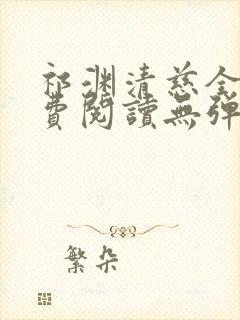 祁渊清慈全
費閱讀無彈
繁朵